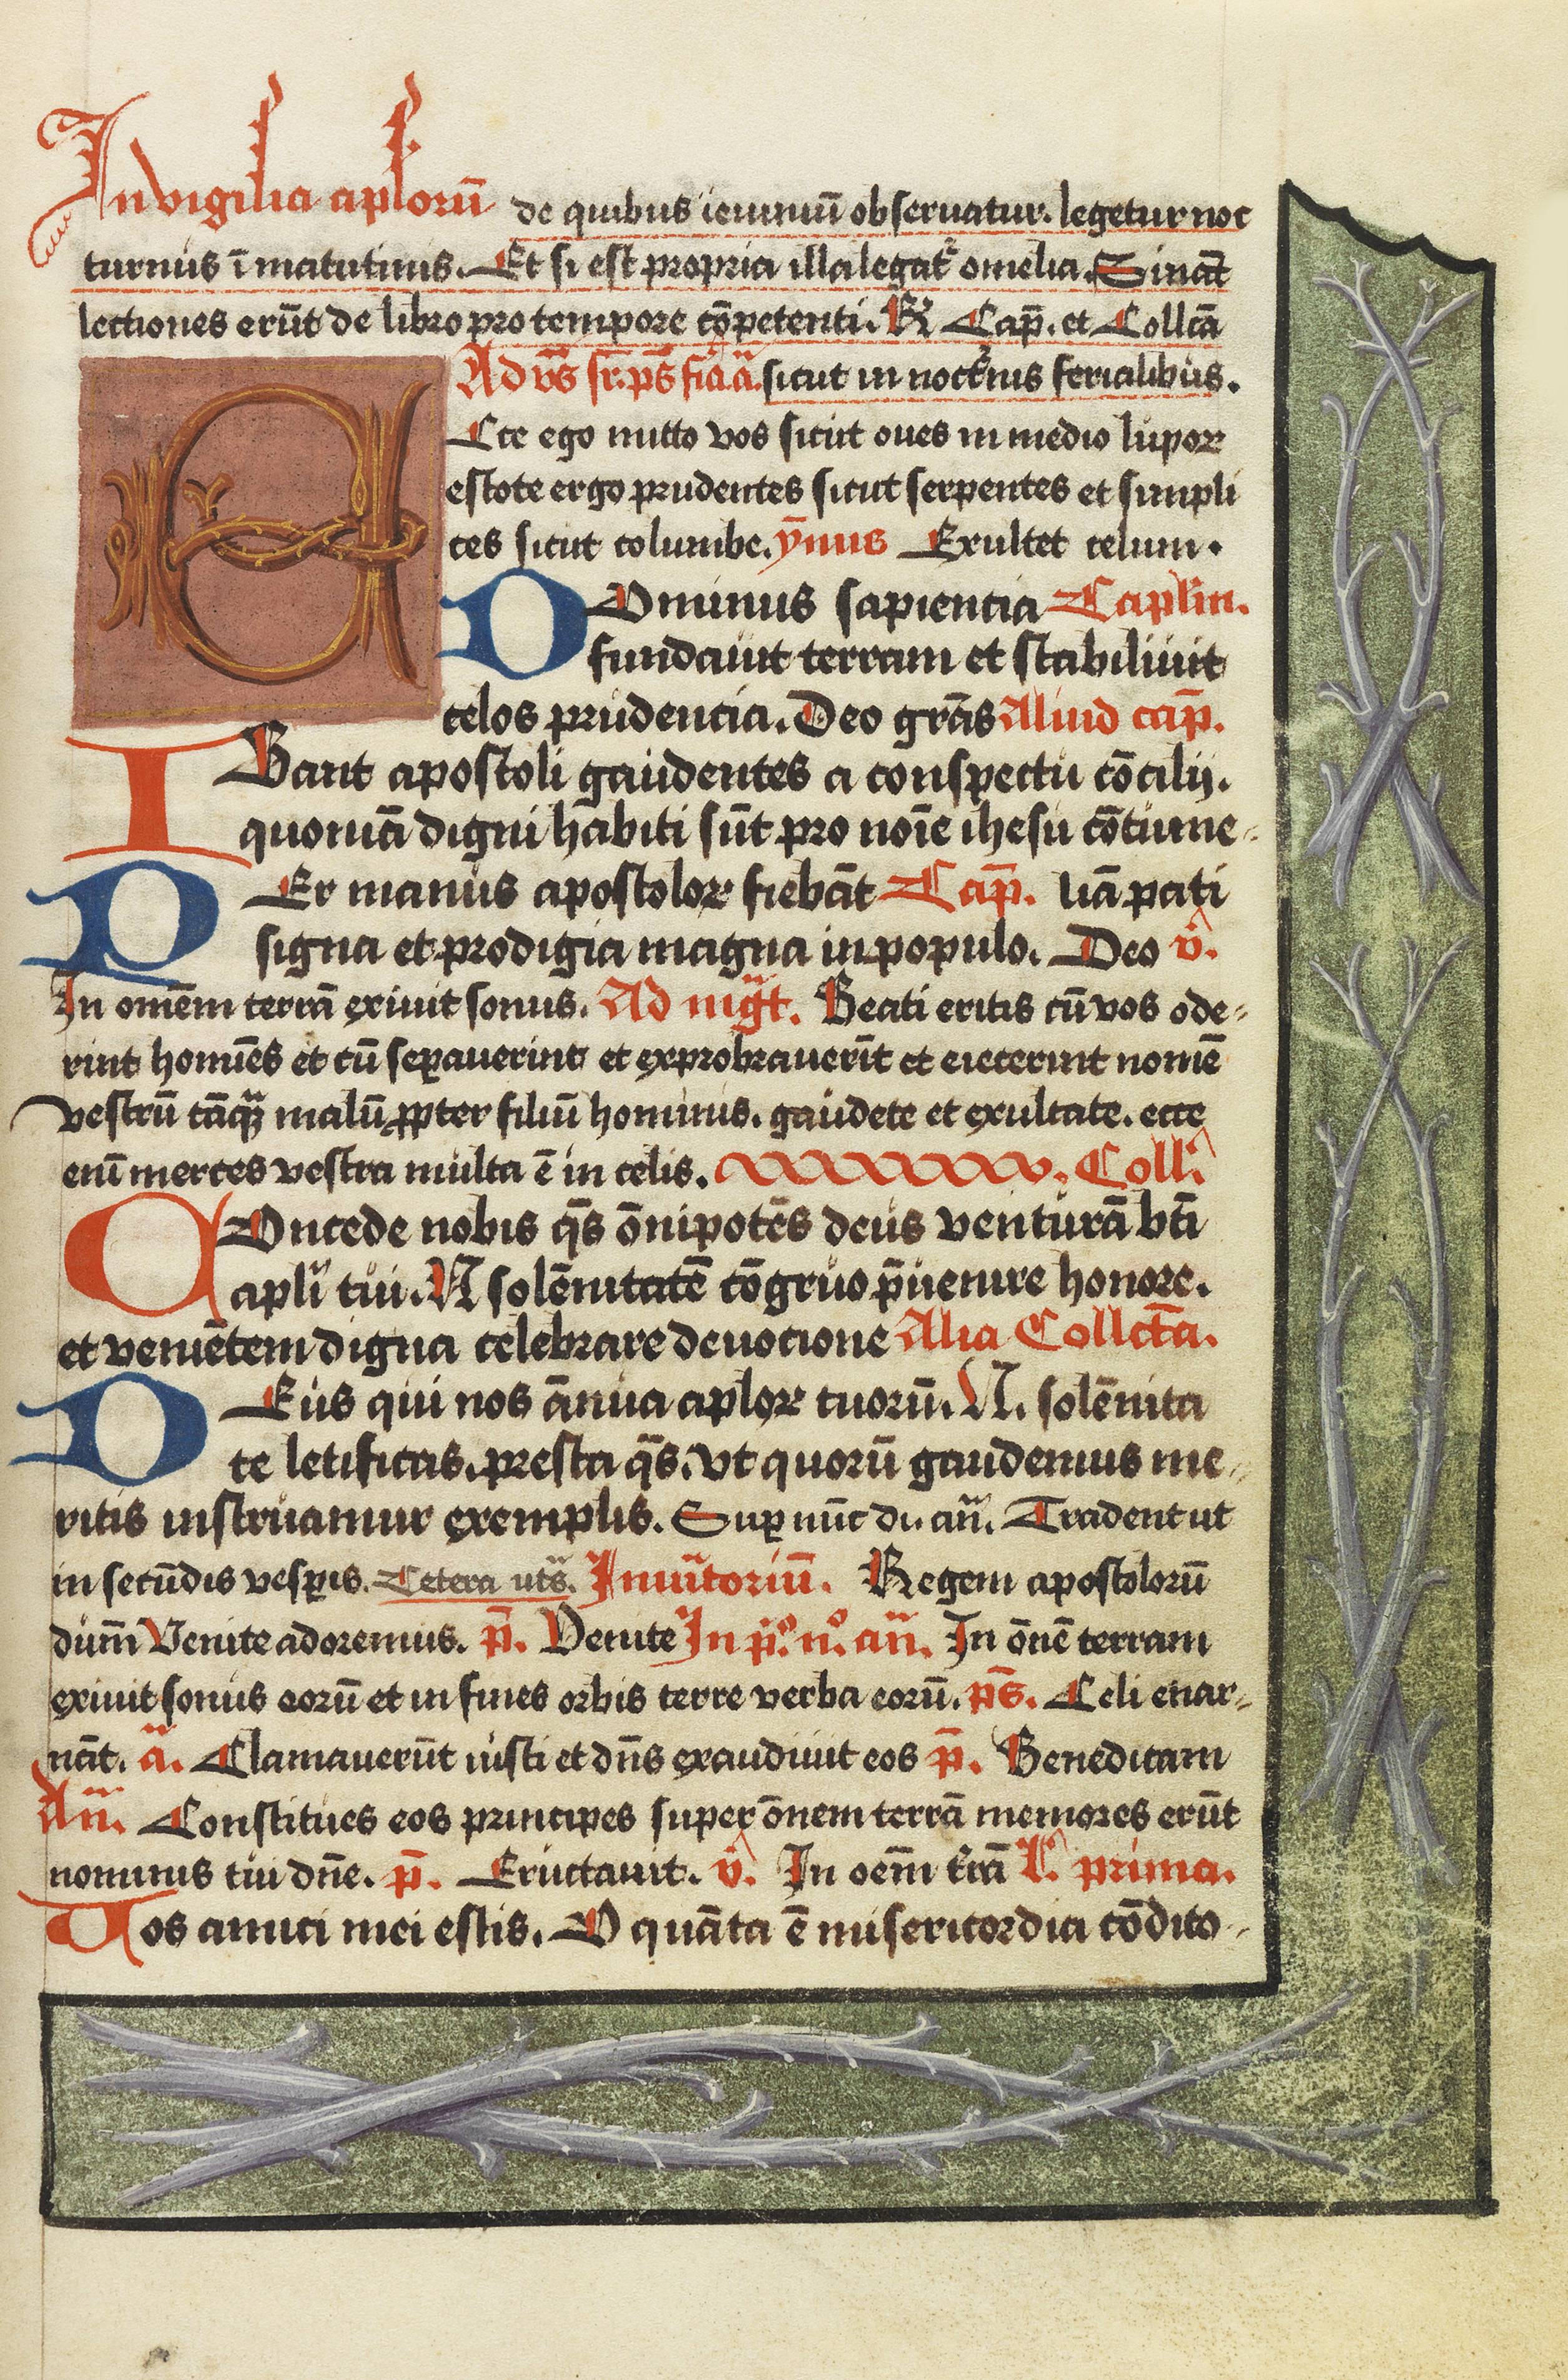 In vigilia aplorū de quibus ieiuniū obseruatur. legetur noc
turnus ī matutinis. Et si est propria illa legat͛ omelia. Sin aūt
lectiones erūt de libro pro tempore cōpetenti. R Cap̄. et Collcā
Ad vs̄ sr̄. ps̄ fiā a. sicut in noct͛nis ferialibus.
Ecce ego mitto vos sicut oues in medio lupor
estote ergo prudentes sicut serpentes et simpli
ces sicut columbe. ȳmus Exultet celum.
DOminus sapiencia Caplm.
fundauit terram et stabiliuit
celos prudencia. Deo grās Aliud cap̄.
IBant apostoli gaudentes a conspectu cōcilij.
quoniā digni habiti sūt pro noīe ihesu cōtume-
PEr manus apostolor fiebāt Cap̄. liā pati
signa et prodigia magna in populo. Deo v̂.
In omēm terrā exiuit sonus. Ad mg̃t. Beati eritis cū vos ode-
rint homīes et cū sepauerint et exprobrauerīt et eiecerint nomē
vestrū tāqꝫ malū ꝓpter filiū hominis. gaudete et exultate. ecce
enī merces vestra multa ē in celis. Coll.
COncede nobis q̄s ōnipotēs deus venturā bt̄i
apli tui. N solēnitatē cōgruo p̄uenire honore.
et veniētem digna celebrare deuocione Alia Collcta.
DEus qui nos ānua aplor tuorū. N. solēnita
te letificas. presta q̄s. vt quorū gaudemus me-
ritis instruamur exemplis. Sup nūc di. an̄. Tradent ut
in secūdis vesp̲is. Cetera uts̄. Inuitoriū. Regem apostolorū
dūm Venite adoremus. p̄. Venite In p̊. n̊. an̄. In ōnē terram
exiuit sonus eorū et in fines orbis terre verba eorū. ps̄. Celi enar-
rāt. ā. Clamauerūt iusti et dn̄s exaudiuit eos p̄. Benedicam
An̄. Constitues eos principes super ōnem terrā memores erūt
nominis tui dn̄e. p̄. Eructauit. v̂. In oēm t͛rā L. prima.
Vos amici mei estis. O quāta ē misericordia cōdito-